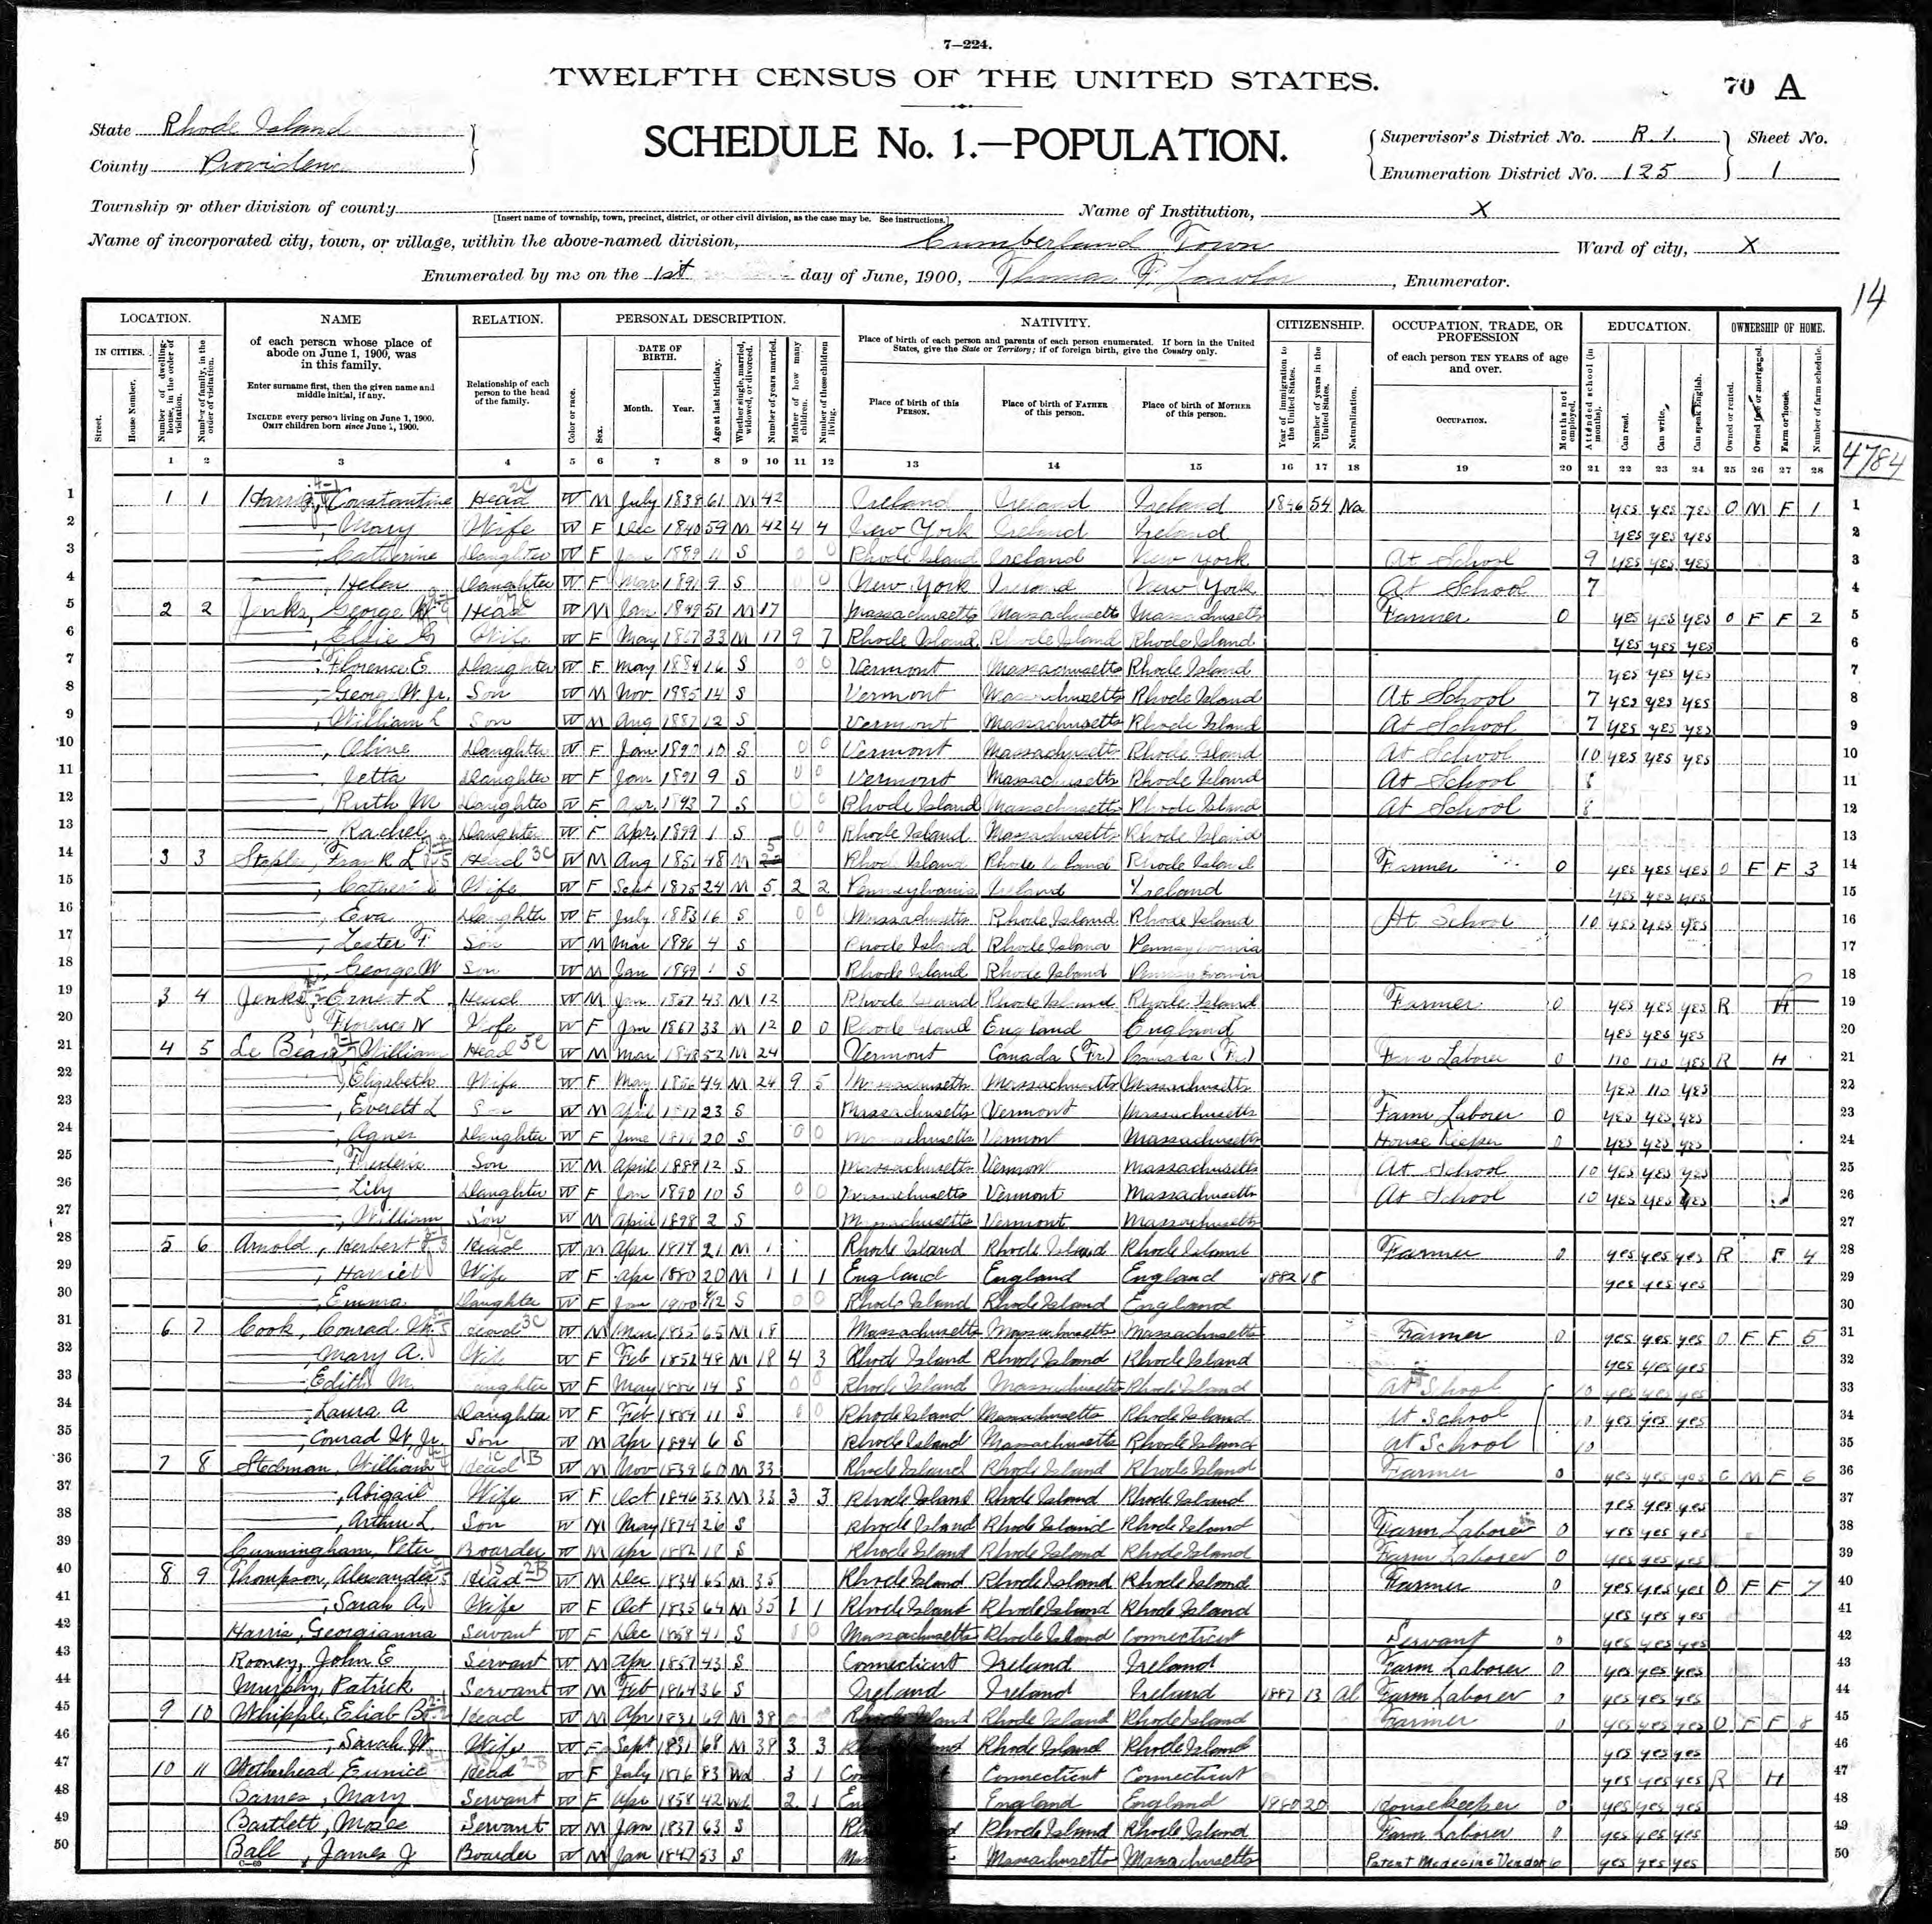 7—224.
TWELFTH CENSUS OF THE UNITED STATES.
70 A
State Rhode Island
SCHEDULE No. 1.—POPULATION.
Supervisor's District No. R.I. Sheet No.
County Providence
Enumeration District No. 125 1
Township or other division of county
[Insert name of township, town, precinct, district, or other civil division, as the case may be. See instructions.]
Name of Institution, X
Name of incorporated city, town, or village, within the above-named division, Cumberland Town Ward of city, X
Enumerated by me on the 1st day of June, 1900, Thomas F. Lawlor, Enumerator.
14
4784
LOCATION. NAME RELATION. PERSONAL DESCRIPTION. NATIVITY. CITIZENSHIP. OCCUPATION, TRADE, OR PROFESSION EDUCATION. OWNERSHIP OF HOME.
IN CITIES. Street. House Number. Number of dwelling-house, in the order of visitation. Number of family, in the order of visitation.
of each person whose place of abode on June 1, 1900, was in this family.
Enter surname first, then the given name and middle initial, if any.
INCLUDE every person living on June 1, 1900. OMIT children born since June 1, 1900.
Relationship of each person to the head of the family.
Color or race. Sex. DATE OF BIRTH. Month. Year. Age at last birthday. Whether single, married, widowed, or divorced. Number of years married. Mother of how many children. Number of these children living.
Place of birth of each person and parents of each person enumerated. If born in the United States, give the State or Territory; if of foreign birth, give the Country only.
Place of birth of this PERSON. Place of birth of FATHER of this person. Place of birth of MOTHER of this person.
Year of immigration to the United States. Number of years in the United States. Naturalization.
of each person TEN YEARS of age and over.
OCCUPATION. Months not employed.
Attended school (in months). Can read. Can write. Can speak English.
Owned or rented. Owned free or mortgaged. Farm or house. Number of farm schedule.
1 2 3 4 5 6 7 8 9 10 11 12 13 14 15 16 17 18 19 20 21 22 23 24 25 26 27 28
1 1 1 Constantine Head W M July 1838 61 M 42 Ireland Ireland Ireland 1846 54 Na yes yes yes O M F 1 1
2 Mary Wife W F Dec 1840 59 M 42 4 4 New York Ireland Ireland yes yes yes 2
3 Catherine Daughter W F Jan 1889 11 S 0 0 Rhode Island Ireland New York At School 9 yes yes yes 3
4 Helen Daughter W F Mar 1891 9 S 0 0 New York Ireland New York At School 7 4
5 2 2 Jenks, George W Head W M Jan 1849 51 M 17 Massachusetts Massachusetts Massachusetts Farmer 0 yes yes yes O F F 2 5
6 Ellie G Wife W F May 1867 33 M 17 9 7 Rhode Island Rhode Island Rhode Island yes yes yes 6
7 Florence E. Daughter W F May 1884 16 S 0 0 Vermont Massachusetts Rhode Island yes yes yes 7
8 George W Jr. Son W M Nov. 1985 14 S Vermont Massachusetts Rhode Island At School 7 yes yes yes 8
9 William L Son W M Aug 1887 12 S Vermont Massachusetts Rhode Island At School 7 yes yes yes 9
10 Oline Daughter W F Jan 1890 10 S 0 0 Vermont Massachusetts Rhode Island At School 10 yes yes yes 10
11 Jetta Daughter W F Jan 1891 9 S 0 0 Vermont Massachusetts Rhode Island At School 8 11
12 Ruth M Daughter W F Apr. 1893 7 S 0 0 Rhode Island Massachusetts Rhode Island At School 8 12
13 Rachel Daughter W F Apr. 1899 1 S 0 0 Rhode Island Massachusetts Rhode Island 13
14 3 3 Staples, Frank L Head 3C W M Aug 1851 48 M 5 Rhode Island Rhode Island Rhode Island Farmer 0 yes yes yes O F F 3 14
15 Catherine Wife W F Sept 1875 24 M 5 2 2 Pennsylvania Ireland Ireland yes yes yes 15
16 Eva Daughter W F July 1883 16 S 0 0 Massachusetts Rhode Island Rhode Island At School 10 yes yes yes 16
17 Lester F. Son W M Mar 1896 4 S Rhode Island Rhode Island Pennsylvania 17
18 George W Son W M Jan 1899 1 S Rhode Island Rhode Island Pennsylvania 18
19 3 4 Jenks, Ernest L Head W M Jan 1857 43 M 12 Rhode Island Rhode Island Rhode Island Farmer 0 yes yes yes R H 19
20 Florence N Wife W F Jan 1867 33 M 12 0 0 Rhode Island England England yes yes yes 20
21 4 5 Le Beau William Head 5C W M Mar 1848 52 M 24 Vermont Canada (Fr) Canada (Fr) Farm Laborer 0 no no yes R H 21
22 Elizabeth Wife W F May 1856 44 M 24 9 5 Massachusetts Massachusetts Massachusetts yes no yes 22
23 Everett L Son W M April 1877 23 S Massachusetts Vermont Massachusetts Farm Laborer 0 yes yes yes 23
24 Agnes Daughter W F June 1879 20 S 0 0 Massachusetts Vermont Massachusetts House Keeper 0 yes yes yes 24
25 Frederic Son W M April 1888 12 S Massachusetts Vermont Massachusetts At School 10 yes yes yes 25
26 Lily Daughter W F Jan 1890 10 S 0 0 Massachusetts Vermont Massachusetts At School 10 yes yes yes 26
27 William Son W M April 1898 2 S Massachusetts Vermont Massachusetts 27
28 5 6 Arnold, Herbert Head W M Apr 1879 21 M 1 Rhode Island Rhode Island Rhode Island Farmer 0 yes yes yes R F 4 28
29 Harriet Wife W F Apr 1880 20 M 1 1 1 England England England 1882 18 yes yes yes 29
30 Emma Daughter W F Jan 1900 S 0 0 Rhode Island Rhode Island England 30
31 6 7 Cook, Conrad W. Head 3C W M Mar 1835 65 M 18 Massachusetts Massachusetts Massachusetts Farmer 0 yes yes yes O F F 5 31
32 Mary A. Wife W F Feb 1852 48 M 18 4 3 Rhode Island Rhode Island Rhode Island yes yes yes 32
33 Edith M. Daughter W F May 1886 14 S 0 0 Rhode Island Massachusetts Rhode Island At School 10 yes yes yes 33
34 Laura A Daughter W F Feb 1889 11 S 0 0 Rhode Island Massachusetts Rhode Island At School 10 yes yes yes 34
35 Conrad W. Jr. Son W M Apr 1894 6 S Rhode Island Massachusetts Rhode Island At School 10 35
36 7 8 Stedman, William Head 1B W M Nov 1839 60 M 33 Rhode Island Rhode Island Rhode Island Farmer 0 yes yes yes O M F 6 36
37 Abigail Wife W F Oct 1846 53 M 33 3 3 Rhode Island Rhode Island Rhode Island yes yes yes 37
38 Arthur L. Son W M May 1874 26 S Rhode Island Rhode Island Rhode Island Farm Laborer 0 yes yes yes 38
39 Cunningham, Peter Boarder W M Apr 1882 18 S Rhode Island Rhode Island Rhode Island Farm Laborer 0 yes yes yes 39
40 8 9 Thompson, Alexander Head 2B W M Dec 1834 65 M 35 Rhode Island Rhode Island Rhode Island Farmer 0 yes yes yes O F F 7 40
41 Sarah A. Wife W F Oct 1835 64 M 35 1 1 Rhode Island Rhode Island Rhode Island yes yes yes 41
42 Harris, Georgianna Servant W F Dec 1858 41 S 0 0 Massachusetts Rhode Island Connecticut Servant 0 yes yes yes 42
43 Rooney, John E Servant W M Apr 1857 43 S Connecticut Ireland Ireland Farm Laborer 0 yes yes yes 43
44 Murphy, Patrick Servant W M Feb 1864 36 S Ireland Ireland Ireland 1887 13 Al Farm Laborer yes yes yes 44
45 9 10 Whipple, Eliab B Head W M Apr 1831 69 M 38 Rhode Island Rhode Island Rhode Island Farmer 0 yes yes yes O F F 8 45
46 Sarah W Wife W F Sept 1831 68 M 38 3 3 Rhode Island Rhode Island yes yes yes 46
47 10 11 Wetherhead Eunice Head 2B W F July 1816 83 Wd 3 1 Connecticut Connecticut yes yes yes R H 47
48 Barnes, Mary Servant W F Apr 1858 42 Wd 2 1 England England 1880 20 Housekeeper 0 yes yes yes 48
49 Bartlett, Moses Servant W M Jan 1837 63 S Rhode Island Rhode Island Farm Laborer 0 yes yes yes 49
50 Ball, James J Boarder W M Jan 1847 53 S Massachusetts Massachusetts Patent Medicine Vendor yes yes yes 50